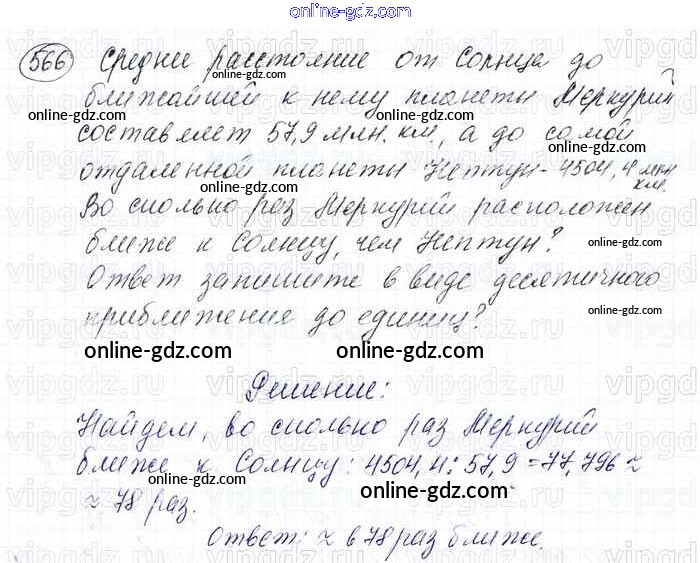 online-gdz.com
566 Среднее расстояние от Солнца до
online-gdz.com
ближайшей к нему планеты Меркурий
online-gdz.com online-gdz.com
составляет 57,9 млн. км, а до самой
отдаленной планеты Нептун - 4504,4 млн
км.
online-gdz.com
Во сколько раз Меркурий расположен
online-gdz.com
ближе к Солнцу, чем Нептун?
online-gdz.com online-gdz.com
Ответ запишите в виде десятичного
online-gdz.com
приближение до единиц?
online-gdz.com online-gdz.com
Решение:
Найдем, во сколько раз Меркурий
online-gdz.com
ближе к Солнцу: 4504,4 : 57,9 = 77,796 ≈
online-gdz.com
≈ 78 раз.
online-gdz.com
Ответ: ≈ в 78 раз ближе.
online-gdz.com